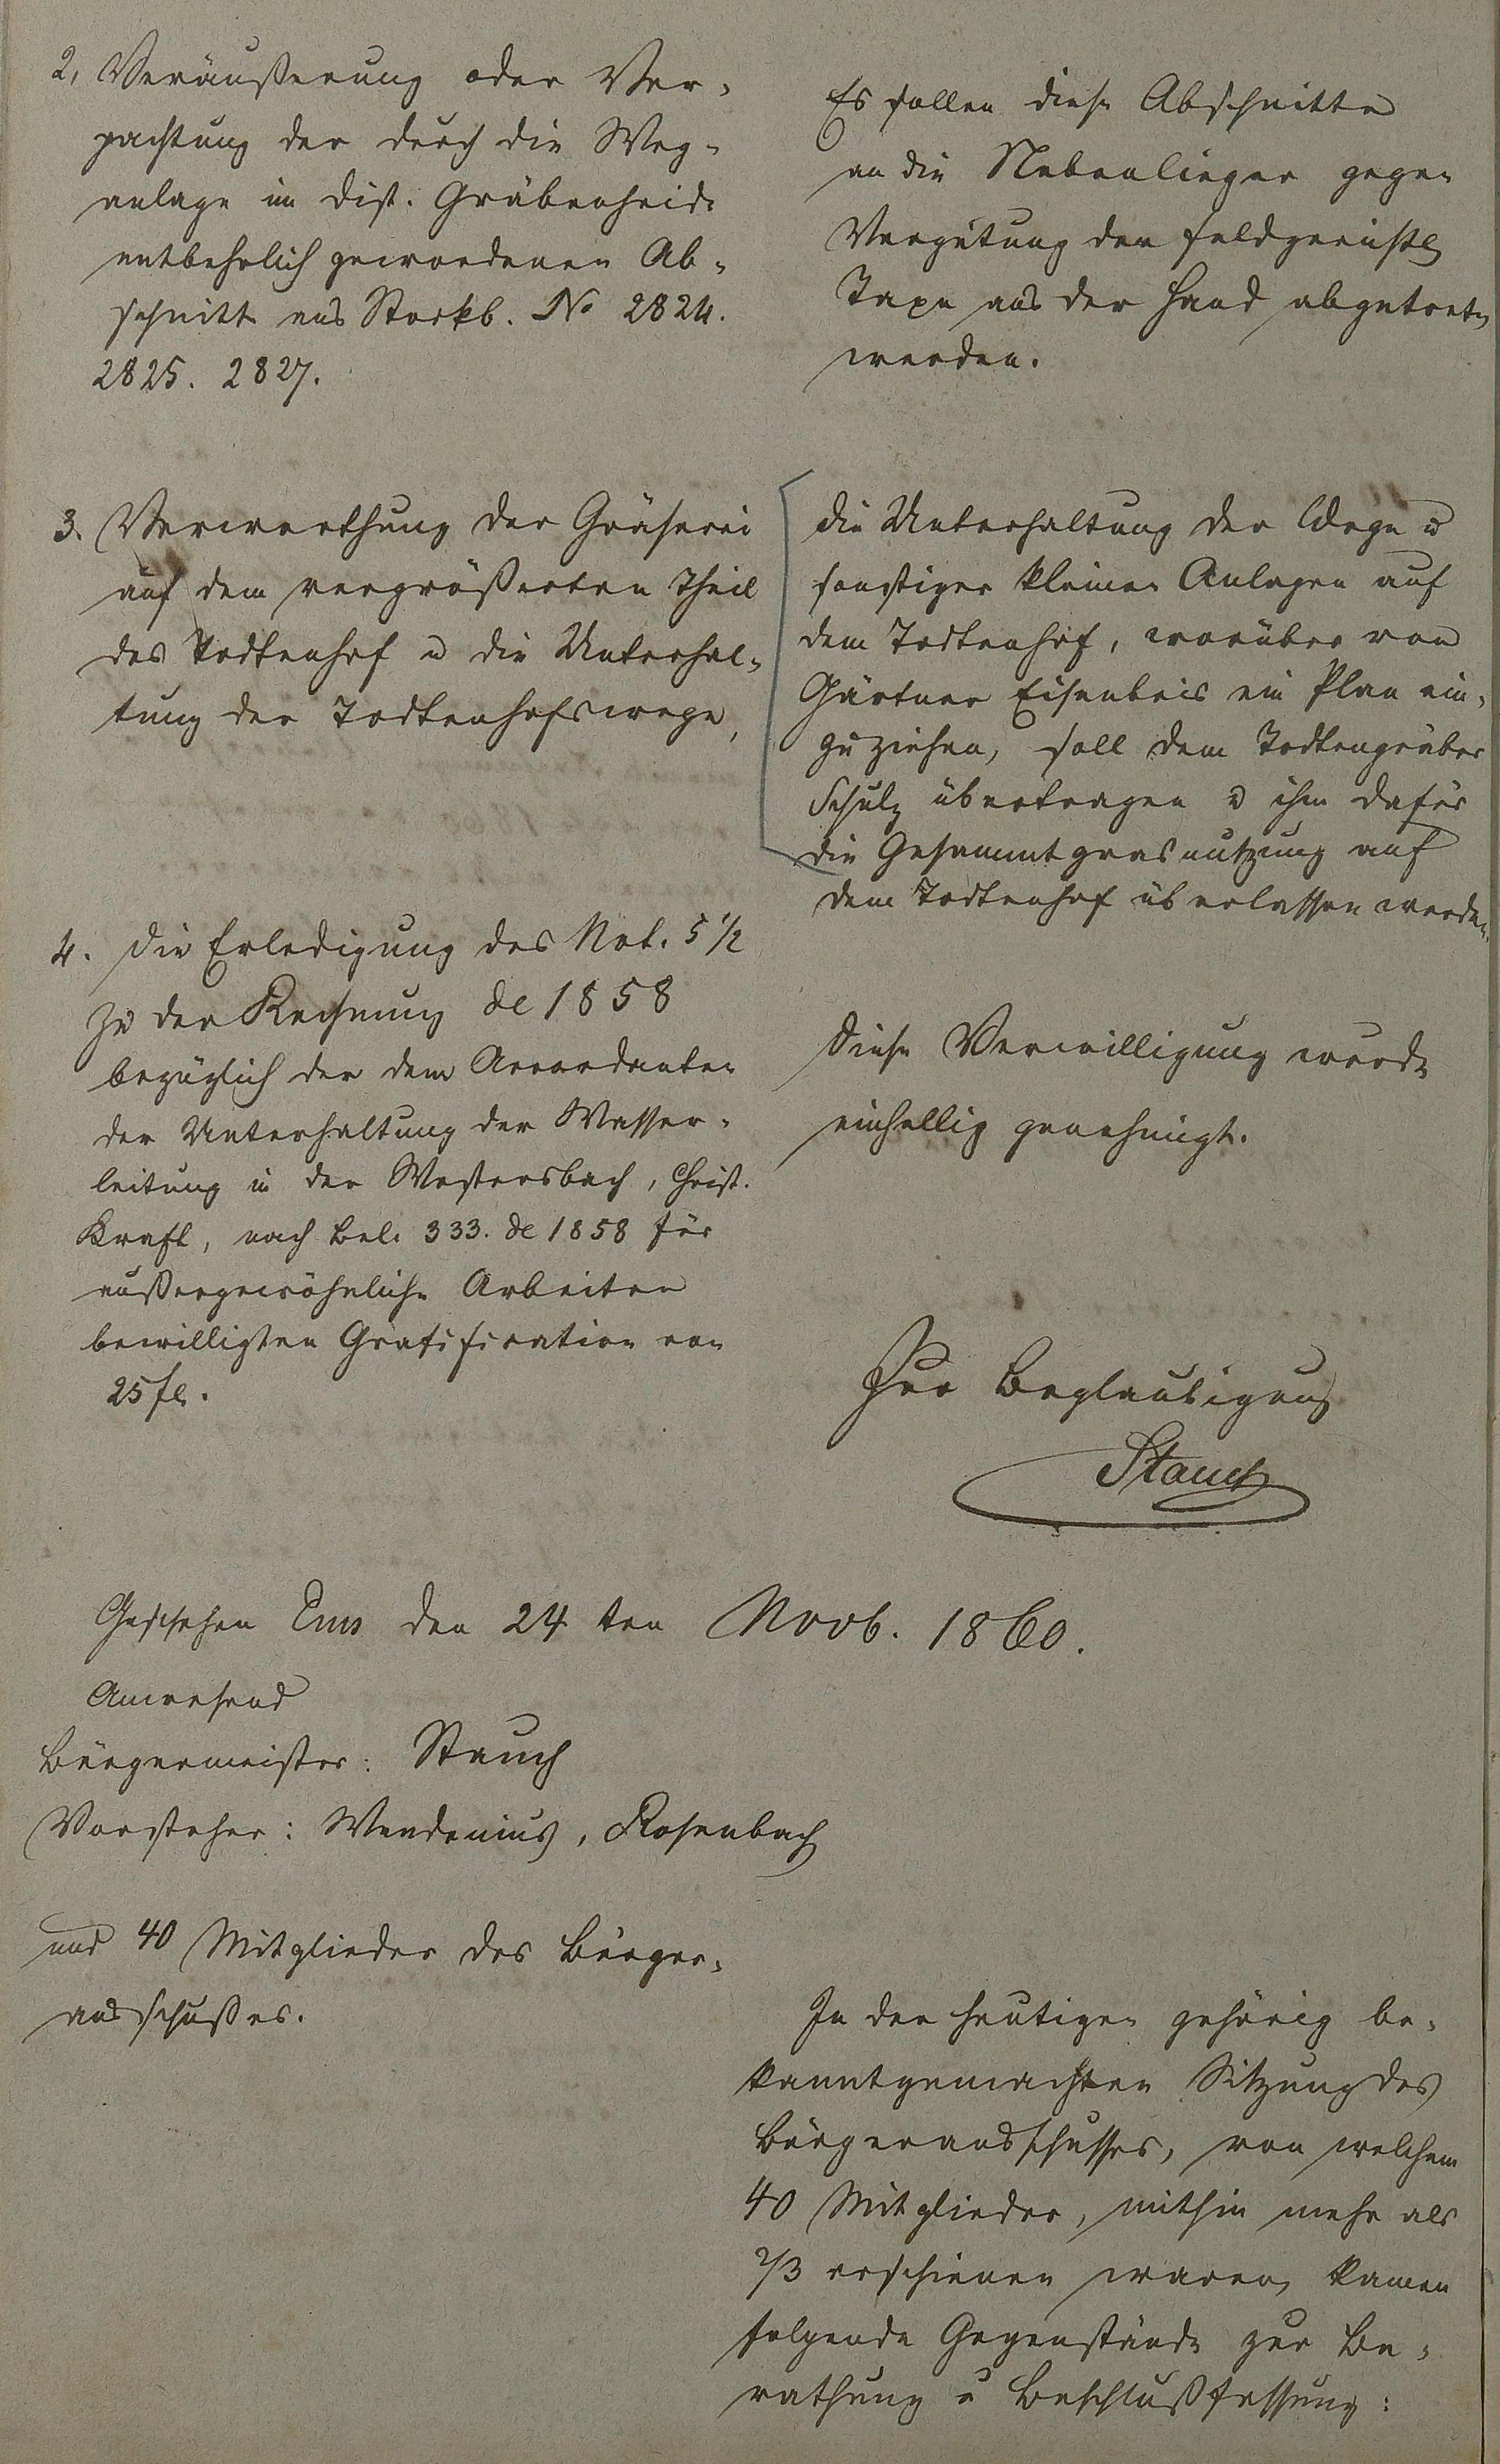 2, Veräußerung oder Ver-
pachtung der durch die Weg-
anlage im Dist. Gräbenheide
entbehrlich gewordenen Ab-
schnitte aus Stockb. No 2824.
2825. 2827.
Es sollen diese Abschnitte
an die Nebenlieger gegen
Vergütung der feldgerichtl
Taxe aus der Hand abgetreten
werden.
3. Verwerthung der Gräserei
auf dem vergrößerten Theil
des Todtenhof u die Unterhal-
tung der Todtenhofswege,
die Unterhaltung der Wege u
sonstiger kleiner Anlagen auf
dem Todtenhof, worüber von
Gärtner Eisenbeis ein Plan ein-
zuziehen, soll dem Todtengräber
Schulz übertragen u ihm dafür
die Gesammtgrasnutzung auf
dem Todtenhof überlassen werden.
4. Die Erledigung des Not. 5 1/2
zu der Rechnung de 1858
bezüglich der dem Accordanten
der Unterhaltung der Wasser-
leitung in der Westersbach, Christ.
Kraft, nach Bel. 333. de 1858 für
außergewöhnliche Arbeiten
bewilligten Gratification von
25 fl.
Diese Verwilligung wurde
einhellig genehmigt.
Zur Beglaubigung
Stauch
Geschehen Ems den 24 ten Novb. 1860.
Anwesend
Bürgermeister: Stauch
Vorsteher: Wendenius, Rosenbach
und 40 Mitglieder des Bürger-
ausschußes.
In der heutigen gehörig be-
kanntgemachten Sitzung des
Bürgerausschusses, von welchem
40 Mitglieder, mithin mehr als
2/3 erschienen waren, kamen
folgende Gegenstände zur Be-
rathung u Beschlußfassung: